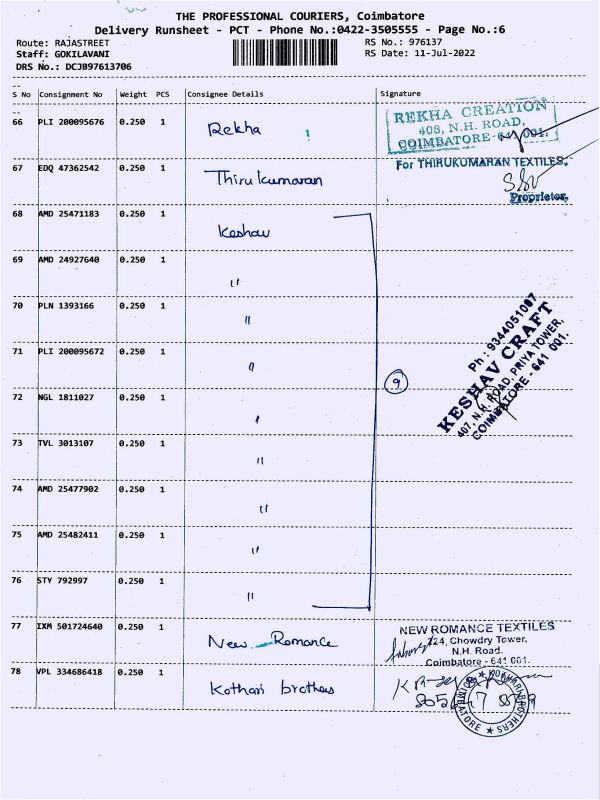 THE PROFESSIONAL COURIERS, Coimbatore
Delivery Runsheet - PCT - Phone No.:0422-3505555 - Page No.:6
Route: RAJASTREET
Staff: GOKILAVANI
DRS No.: DCJB97613706
RS No.: 976137
RS Date: 11-Jul-2022
S No Consignment No Weight PCS Consignee Details Signature
66 PLI 200095676 0.250 1 Rekha
REKHA CREATION
408, N.H. ROAD,
COIMBATORE-641 001.
67 EDQ 47362542 0.250 1 Thirukumaran
For THIRUKUMARAN TEXTILES,
Proprietor,
68 AMD 25471183 0.250 1 Keshav
69 AMD 24927640 0.250 1 "
70 PLN 1393166 0.250 1 "
71 PLI 200095672 0.250 1 "
72 NGL 1811027 0.250 1 "
73 TVL 3013107 0.250 1 "
74 AMD 25477902 0.250 1 "
75 AMD 25482411 0.250 1 "
76 STY 792997 0.250 1 "
9
Ph : 9344051007
KESHAV CRAFT
407, N.H. ROAD, PRIYA TOWER,
COIMBATORE - 641 001.
77 IXM 501724640 0.250 1 New Romance
NEW ROMANCE TEXTILES
124, Chowdry Tower,
N.H. Road.
Coimbatore - 641 001.
78 VPL 334686418 0.250 1 Kothari brothers
KOTHARI BROTHERS
COIMBATORE